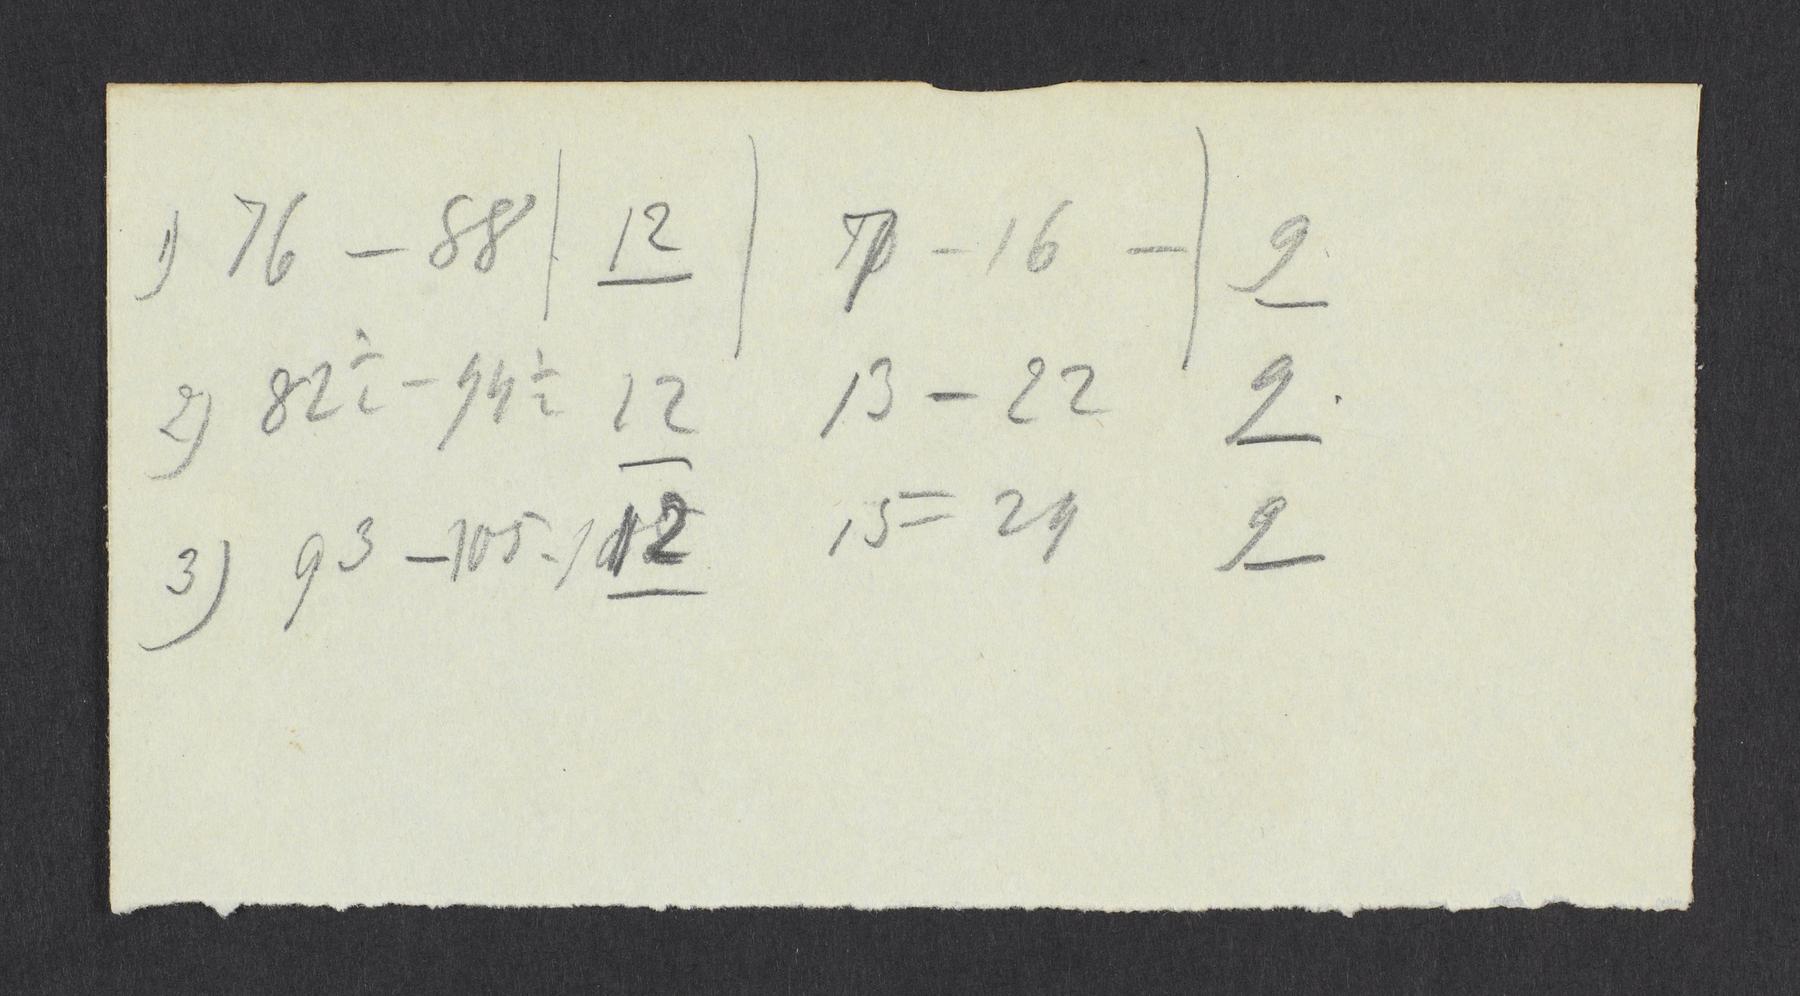 1) 76 – 88 | 12 | 7 – 16 – | 9
2) 82½ – 94½ 12 13 – 22 9.
3) 93 – 105 - 12 15 = 24 9